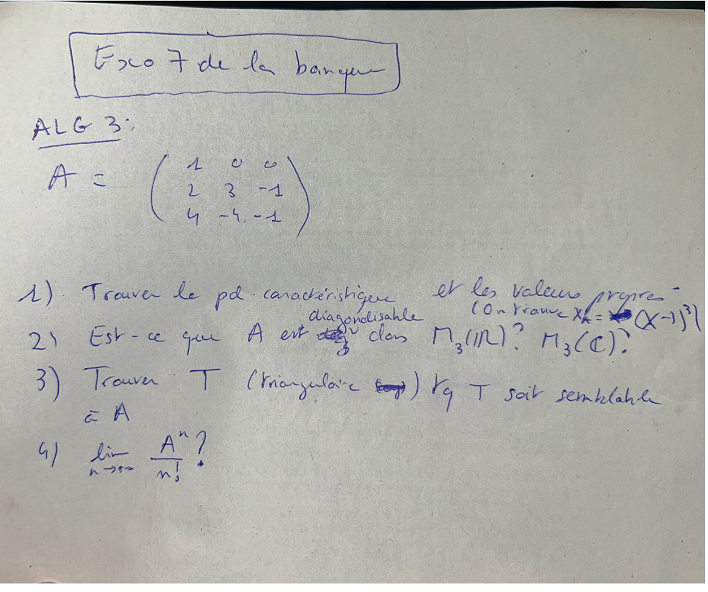 Exo 7 de la banque
ALG 3:
A = ( 1 0 0
2 3 -1
4 -4 -1 )
1) Trouver le pol. caractéristique et les valeurs propres
(On trouve X_A = (X-1)^3)
2) Est-ce que A est diagonalisable dans M_3(ℝ)? M_3(ℂ)?
3) Trouver T (triangulaire) tq T soit semblable
à A
4) lim n→+∞ A^n / n! ?